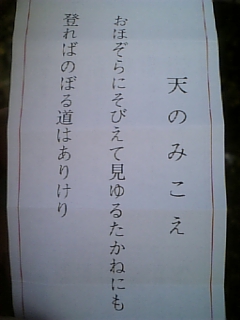 天のみこえ
おほぞらにそびえて見ゆるたかねにも
登ればのぼる道はありけり